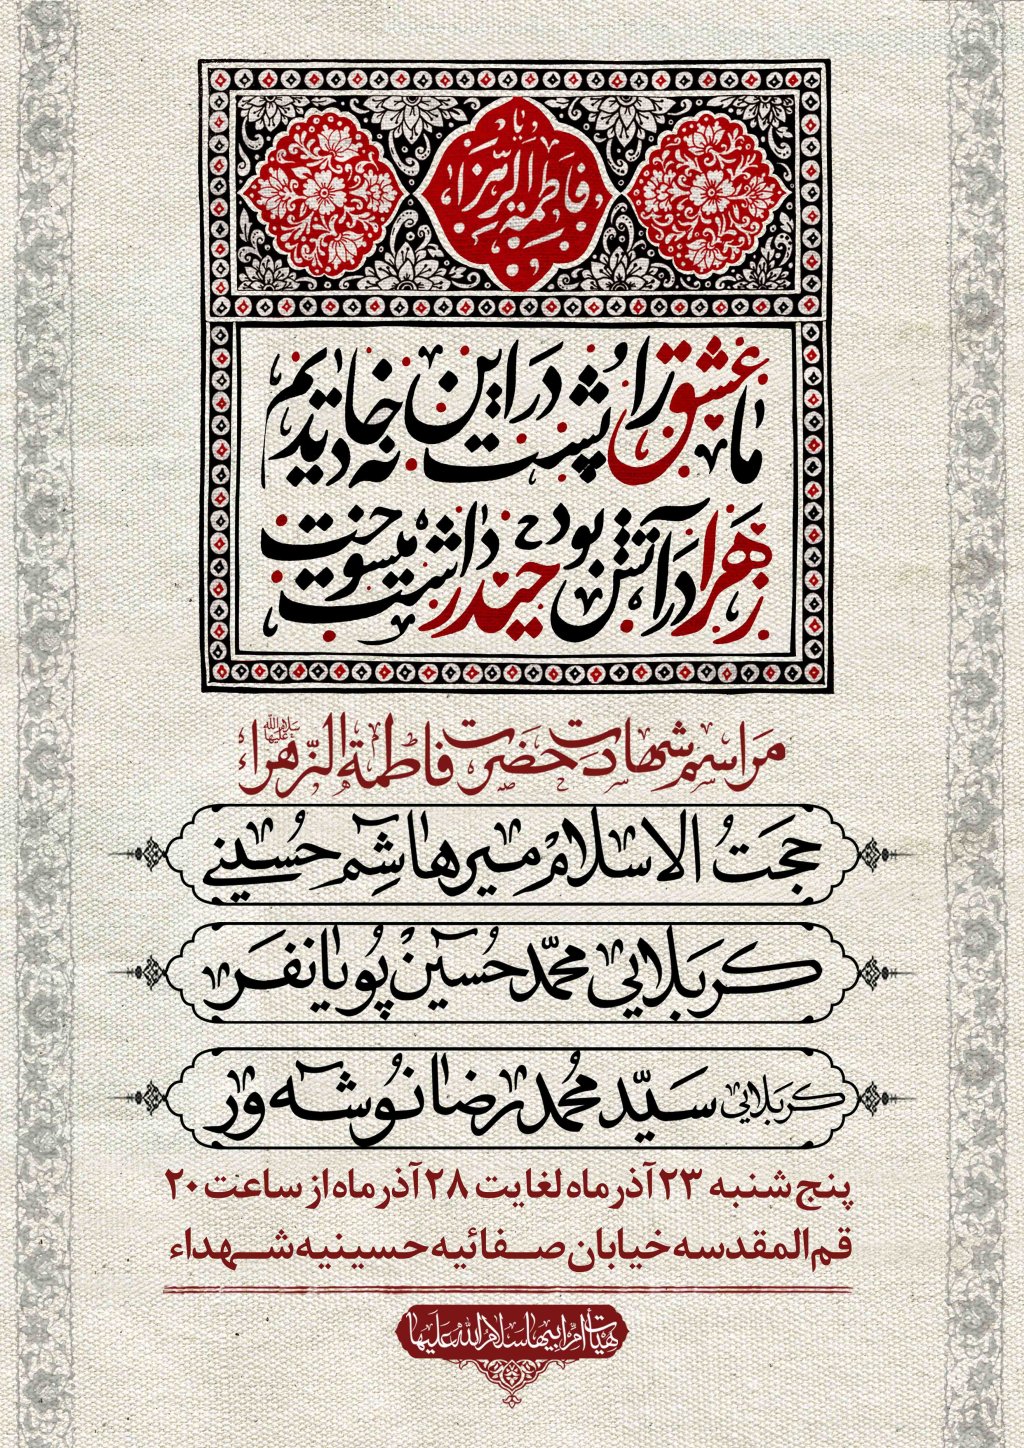 یا فاطمة الزهرا
ما عشق را پشت در این خانه دیدیم
زهرا در آتش بود حیدر داشت میسوخت
مراسم شهادت حضرت فاطمة الزّهراء سلام الله علیها
حجت الاسلام میرهاشم حسینی
کربلایی محمّدحسین پویانفر
کربلایی سیّدمحمدرضا نوشه ور
پنج شنبه ۲۳ آذرماه لغایت ۲۸ آذرماه از ساعت ۲۰
قم المقدسه خیابان صفائیه حسینیه شهداء
هیأت ام ابیها سلام الله علیها